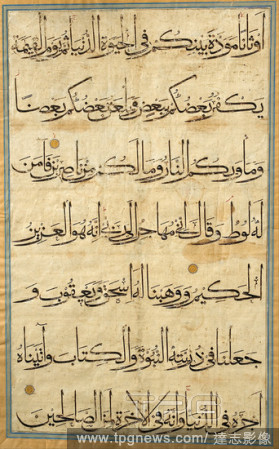 اوثانا مودة بينكم في الحيوة الدنيا ثم يوم القيمة
يكفر بعضكم ببعض ويلعن بعضكم بعضا
وماويكم النار وما لكم من ناصرين فامن
له لوط وقال اني مهاجر الى ربي انه هو العزيز
الحكيم ووهبنا له اسحق ويعقوب و
جعلنا في ذريته النبوة والكتاب وآتيناه
اجره في الدنيا وانه في الاخرة لمن الصالحين
www.tpgnews.com / 達志影像